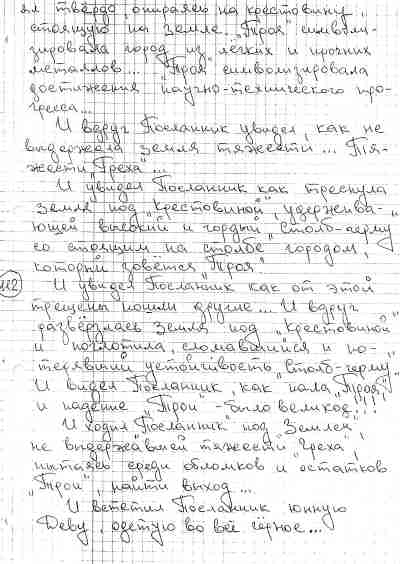 ял твёрдо, опираясь на крестовину,
стоящую на земле. „Троя" символи-
зировала город из лёгких и прочных
металлов... „Троя" символизировала
достижения научно-технического про-
гресса...
И вдруг Посланник увидел, как не
выдержала земля тяжести... Тя-
жести „Греха"...
И увидел Посланник как треснула
земля под „крестовиной", удержива-
ющей высокий и гордый „столб-ферму"
со стоящим на столбе городом,
который зовётся „Троя".
112
И увидел Посланник как от этой
трещены пошли другие... И вдруг
развёрзлась земля под „крестовиной"
и поглотила, сломавшийся и по-
терявший устойчивость „столб-ферму".
И видел Посланник, как пала „Троя",
и падение „Трои" - было великое!!!
И ходил Посланник под „Землей",
не выдержавшей тяжести „Греха",
пытаясь среди обломков и остатков
„Трои", найти выход...
И встетил Посланник юнную
Деву, одетую во всё чёрное...